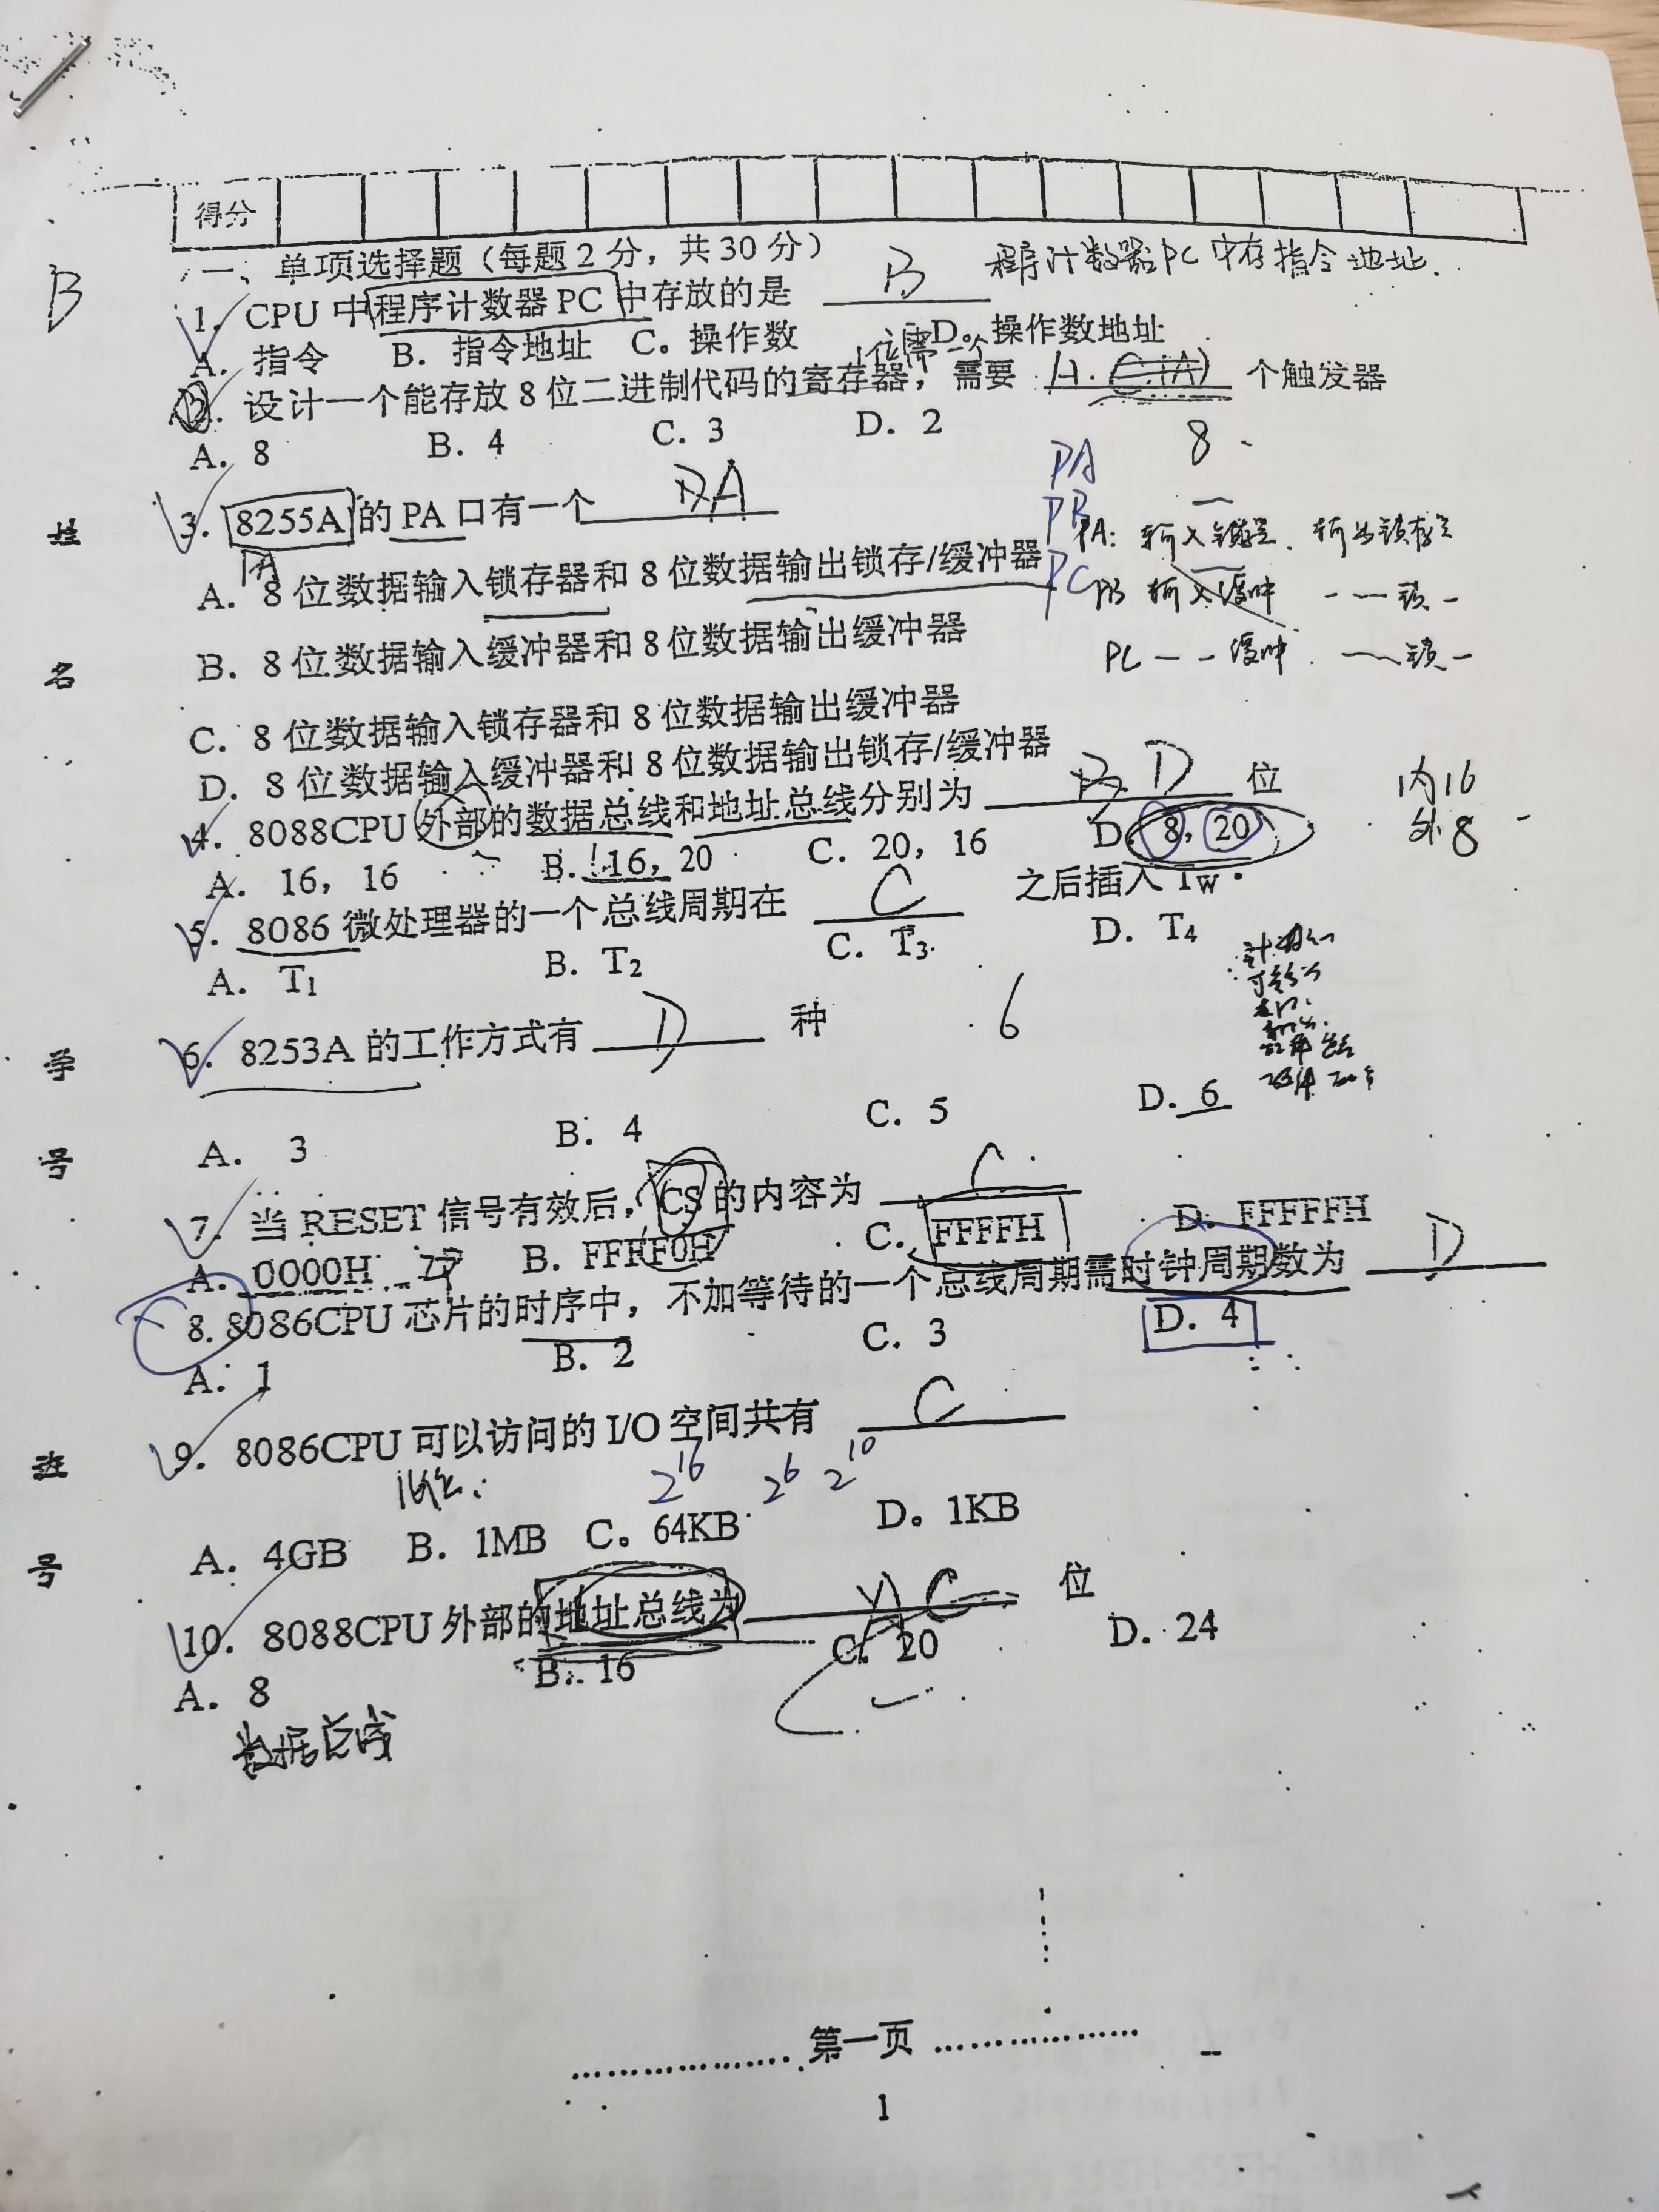 得分
一、单项选择题（每题2分，共30分）
B
程序计数器PC中存指令地址.
1. CPU 中程序计数器 PC 中存放的是 B
A. 指令 B. 指令地址 C。操作数 D。操作数地址
1位需一个
2. 设计一个能存放 8 位二进制代码的寄存器，需要 个触发器
A. 8 B. 4 C. 3 D. 2
8
PA
PB
PC
3. 8255A 的 PA 口有一个 A
PA: 输入锁存 输出锁存
A. 8 位数据输入锁存器和 8 位数据输出锁存/缓冲器
PB 输入缓冲 - — 锁 -
B. 8 位数据输入缓冲器和 8 位数据输出缓冲器
PC — - 缓冲. — 锁 -
C. 8 位数据输入锁存器和 8 位数据输出缓冲器
D. 8 位数据输入缓冲器和 8 位数据输出锁存/缓冲器
4. 8088CPU 外部的数据总线和地址总线分别为 D 位
内16
外8
A. 16，16 B. 16，20 C. 20，16 D. 8，20
5. 8086 微处理器的一个总线周期在 C 之后插入 Tw
A. T1 B. T2 C. T3. D. T4
6. 8253A 的工作方式有 D 种
6
A. 3 B. 4 C. 5 D. 6
7. 当 RESET 信号有效后，CS 的内容为 C
A. 0000H B. FFFF0H C. FFFFH D. FFFFFH
IP
8. 8086CPU 芯片的时序中，不加等待的一个总线周期需时钟周期数为 D
A. 1 B. 2 C. 3 D. 4
9. 8086CPU 可以访问的 I/O 空间共有 C
16位. 2^16 2^6 2^10
A. 4GB B. 1MB C。64KB D。1KB
10. 8088CPU 外部的地址总线为 C 位
A. 8 B. 16 C. 20 D. 24
数据总线
姓
名
学
号
班
号
第一页
1